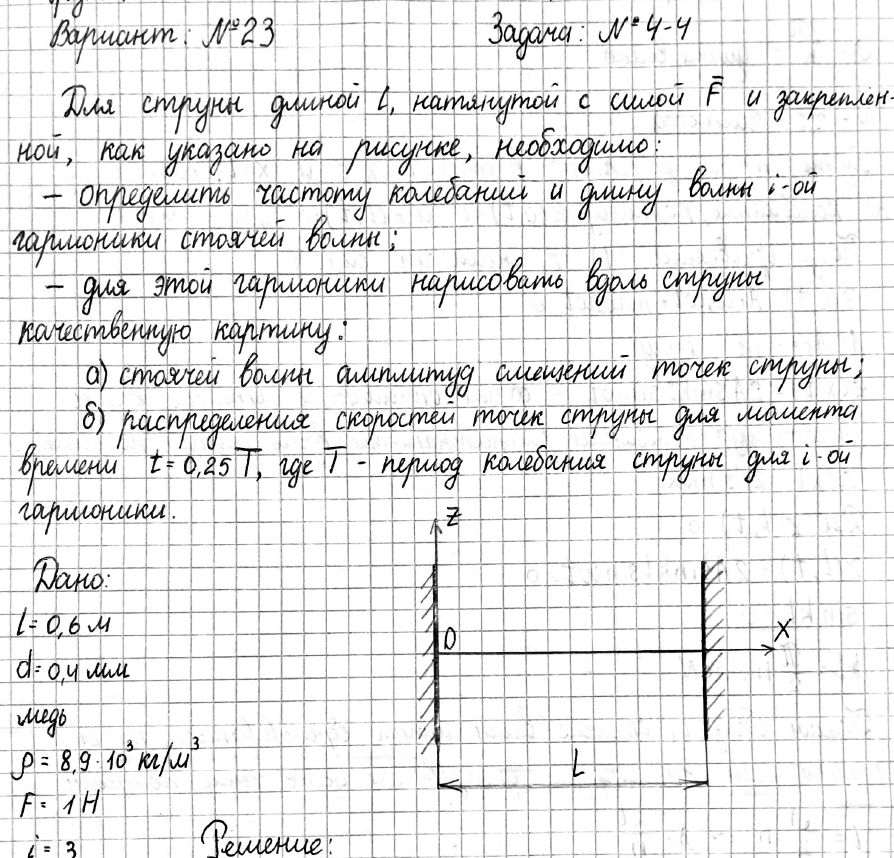 Вариант: №23 Задача: №4-4
Для струны длиной l, натянутой с силой F̄ и закреплен-
ной, как указано на рисунке, необходимо:
– определить частоту колебаний и длину волны i-ой
гармоники стоячей волны;
– для этой гармоники нарисовать вдоль струны
качественную картину:
а) стоячей волны амплитуд смещений точек струны;
б) распределения скоростей точек струны для момента
времени t = 0,25 T, где T - период колебания струны для i-ой
гармоники.
Z
Дано:
l = 0,6 м
0 X
d = 0,4 мм
медь
ρ = 8,9·10³ кг/м³
L
F = 1 Н
i = 3 Решение: